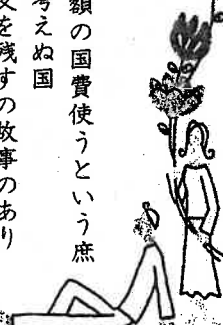 額の国費使うという庶
考えぬ国
文を残すの故事のあり